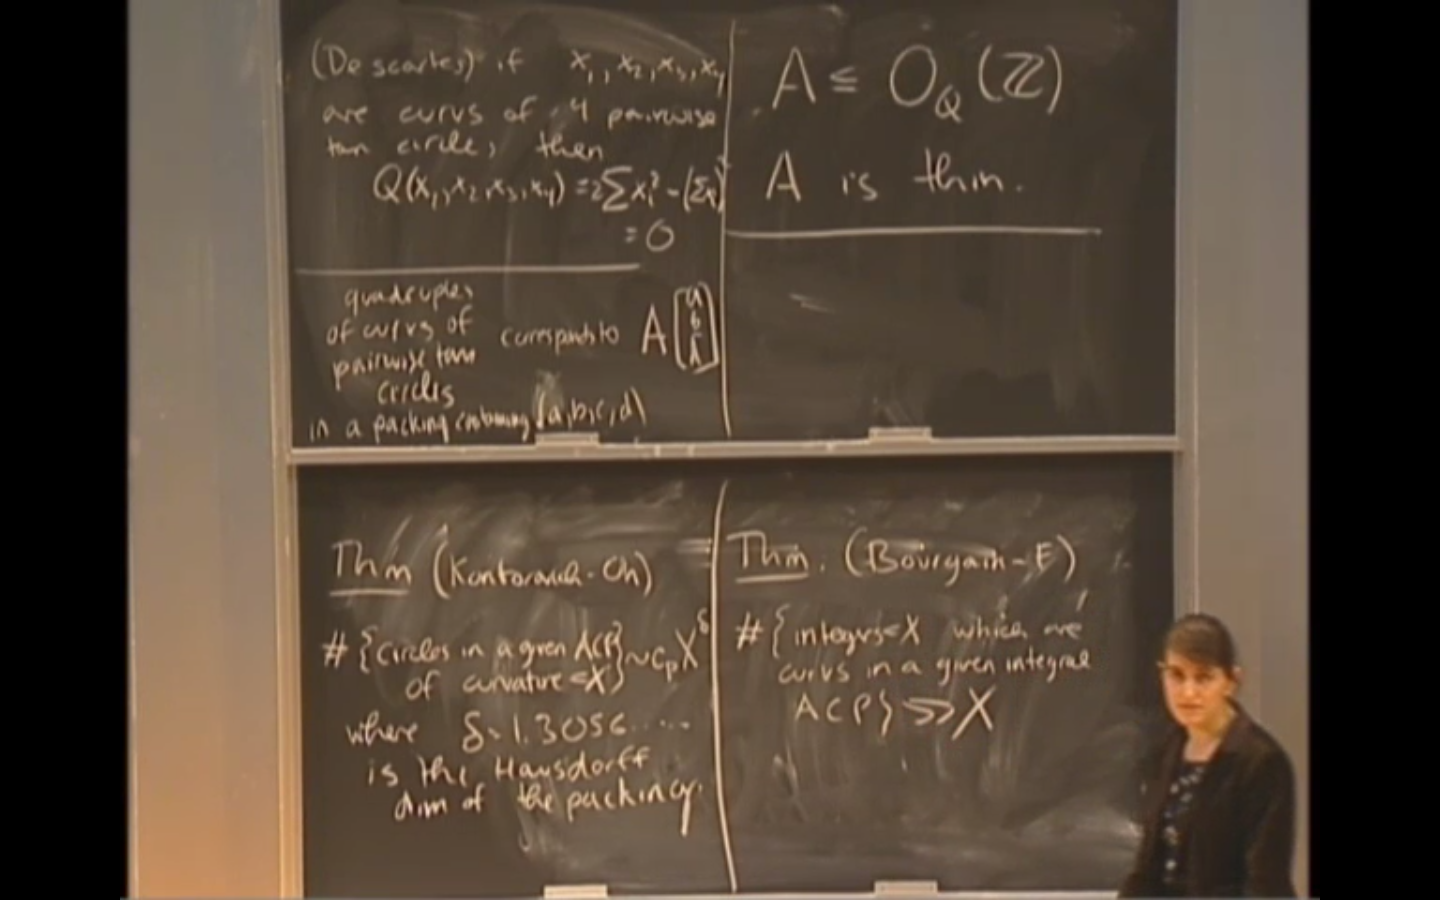 (Descartes) if x₁, x₂, x₃, x₄
are curvs of 4 pairwise
tan circles, then
Q(x₁, x₂, x₃, x₄) = 2∑xᵢ² - (∑xᵢ)²
= 0
quadruples
of curvs of
pairwise tan
circles
in a packing containing (a,b,c,d)
corresponds to A [a b c d]
A ≤ O_Q(ℤ)
A is thin.
Thm (Kontorovich-Oh)
# {circles in a given ACP
of curvature < X} ~ c_p X^δ
where δ = 1.3056.....
is the Hausdorff
dim of the packing.
Thm. (Bourgain-F)
# {integers < X which are
curvs in a given integral
ACP} >> X